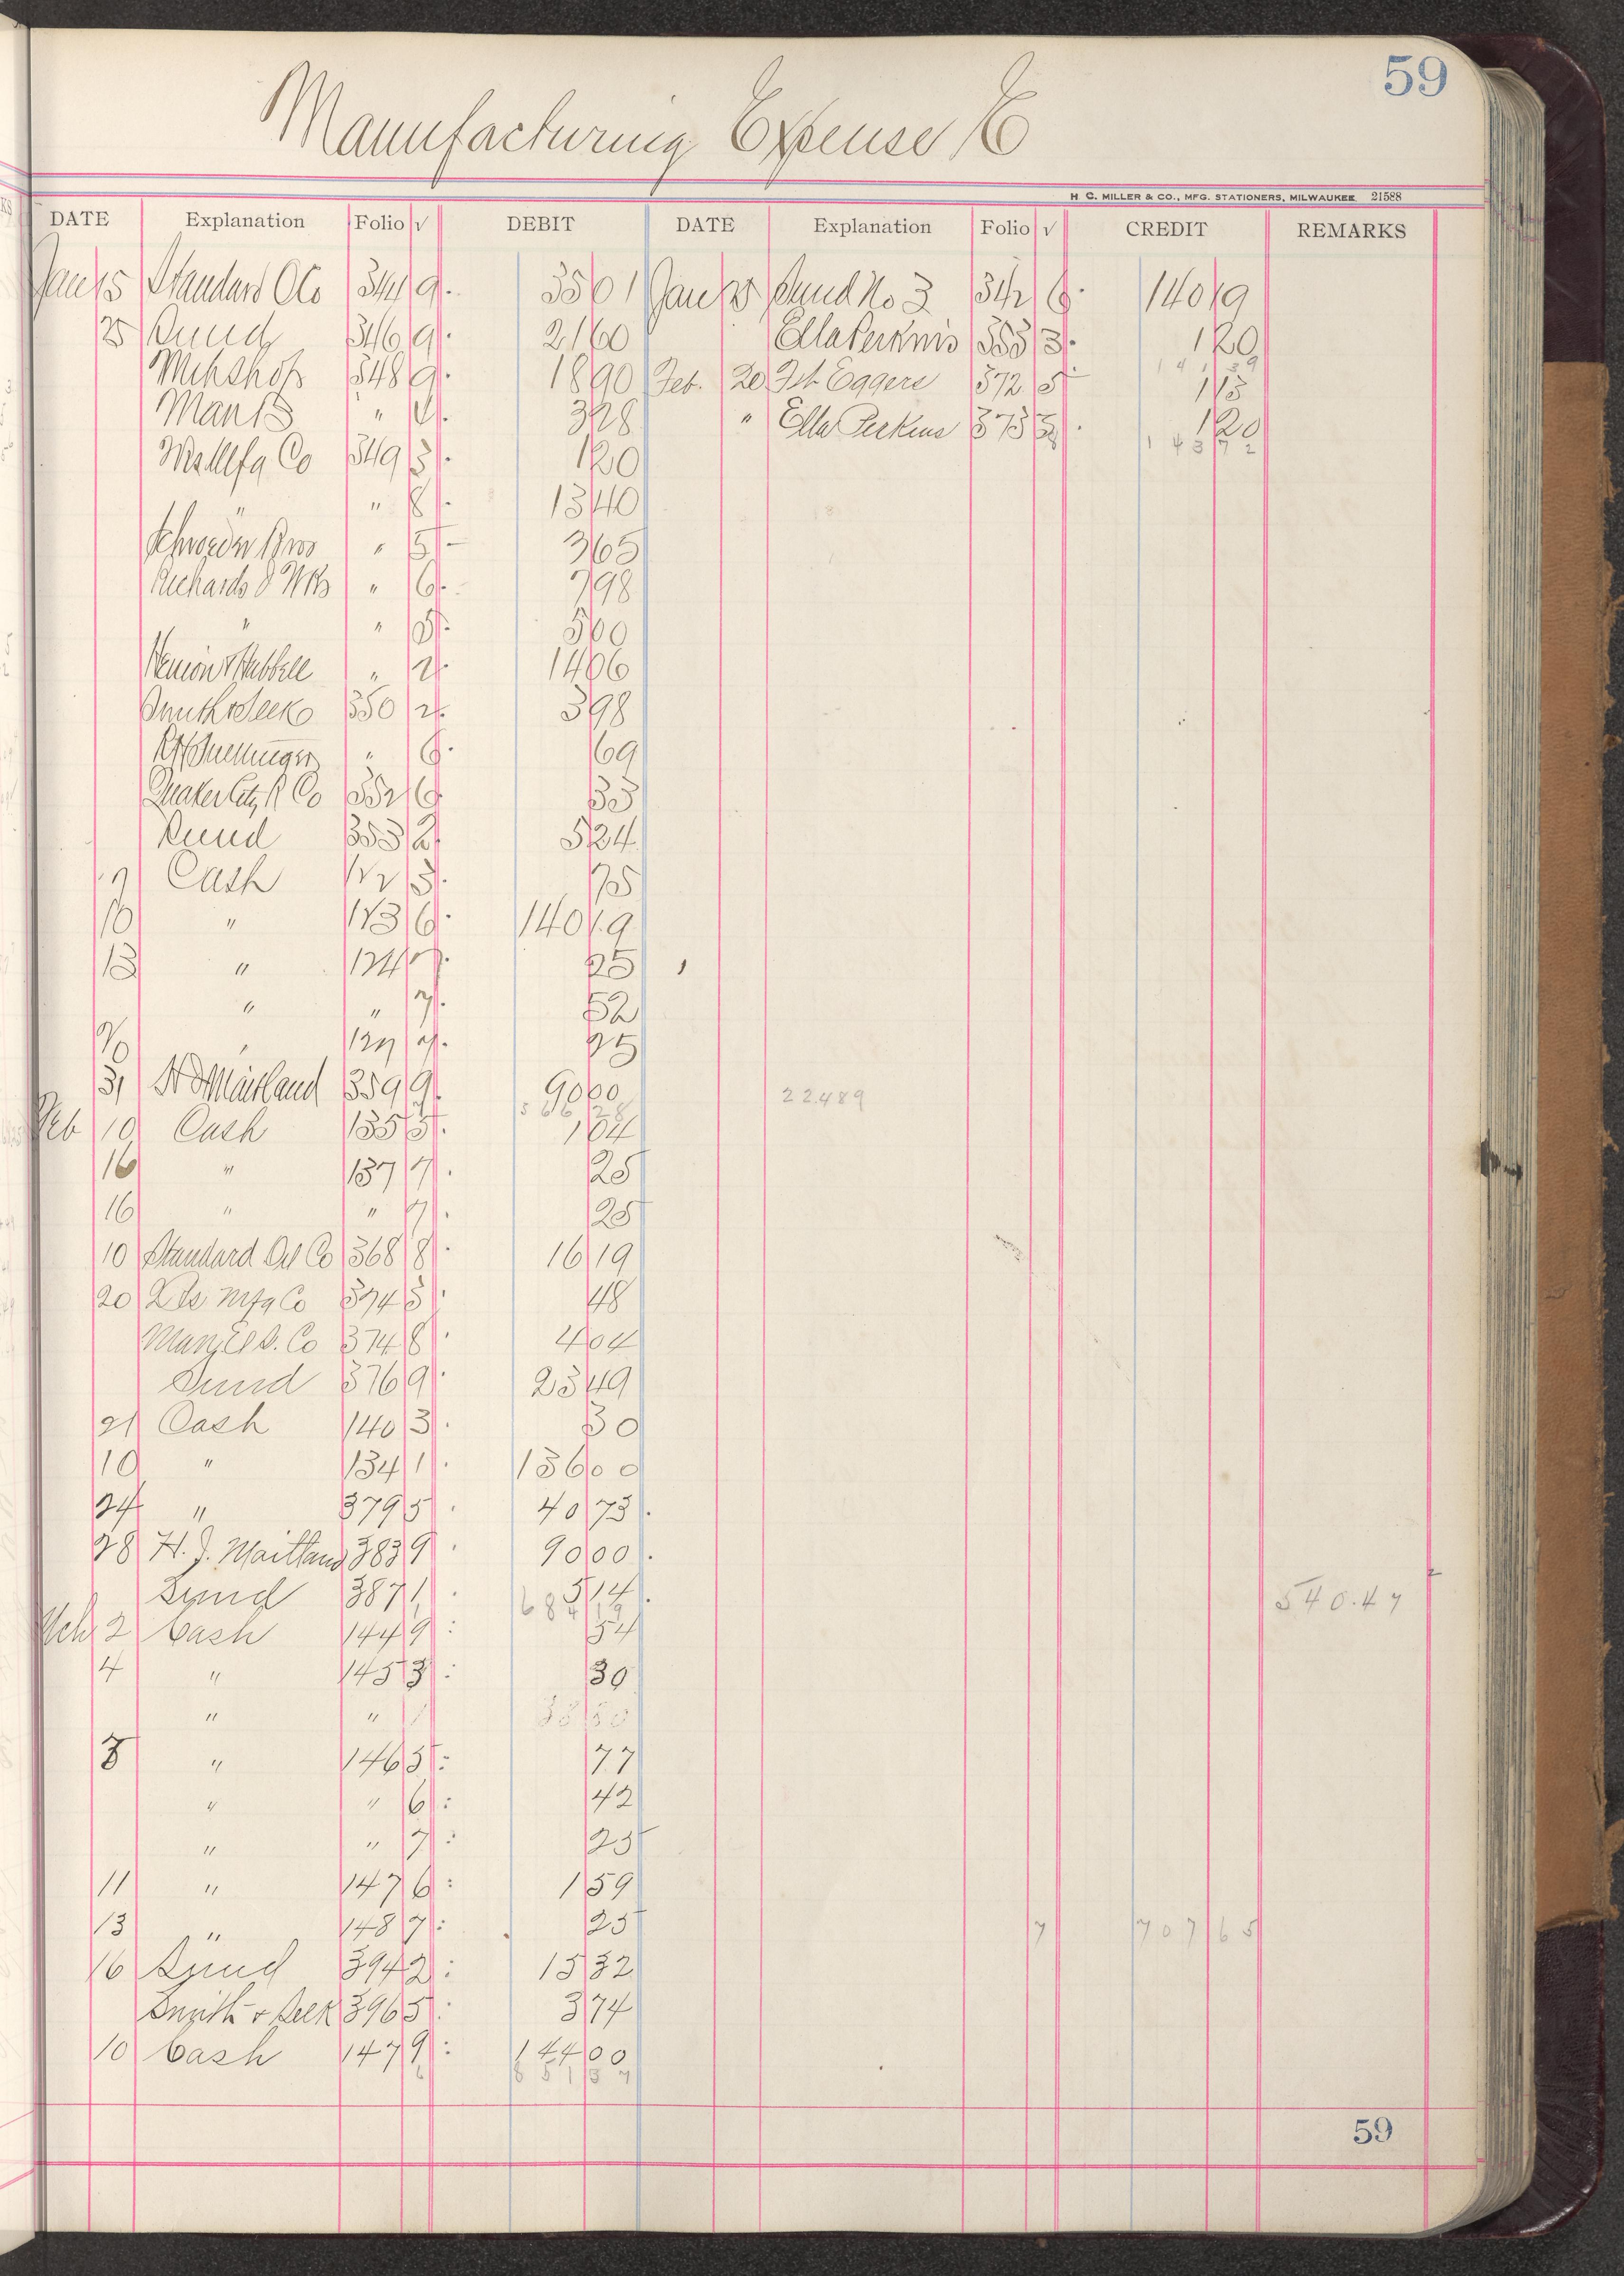 59
Manufacturing Expense %
H. C. MILLER & CO., MFG. STATIONERS, MILWAUKEE 21588
DATE Explanation Folio √ DEBIT DATE Explanation Folio √ CREDIT REMARKS
Jan 15 Standard O Co 344 9 35 01 Jan 25 Sund No 3 342 6 140 19
25 Sund 346 9 21 60 Ella Perkins 353 3 1 20
348 9 18 90 Feb. 20 Eggers 372 5 1 13
" 3 28 " Ella Perkins 373 3 1 20
Mfg Co 349 3 1 20 143 72
" " 8 13 40
Schroeder Bros " 5 3 65
Richards " 6 7 98
" " 5 00
" 2 14 06
Smith & Seek 350 2 3 98
" 6 69
Quaker City R Co 352 6 35
Sund 353 2 5 24
Cash 122 3 75
10 " 123 6 140 19
13 " 124 7 25
" " 7 52
" 127 25
31 H J Maitland 359 9 90 00 22489
Feb 10 Cash 135 5 1 04
16 " 137 7 25
16 " " 7 25
10 Standard Oil Co 368 8 16 19
20 Mfg Co 374 3 48
Co 374 8 4 04
Sund 376 9 23 49
21 Cash 140 3 30
10 " 134 1 136 00
24 " 379 5 40 73
28 H. J. Maitland 383 9 90 00
Sund 387 1 5 14 540.47
Mch 2 Cash 144 9 54
4 " 145 3 30
" "
8 " 146 5 77
" " 6 42
" " 7 25
11 " 147 6 1 59
13 " 148 7 25 7 707 65
16 Sund 394 2 15 32
Smith & Seek 396 5 3 74
10 Cash 147 9 144 00
851 57
59